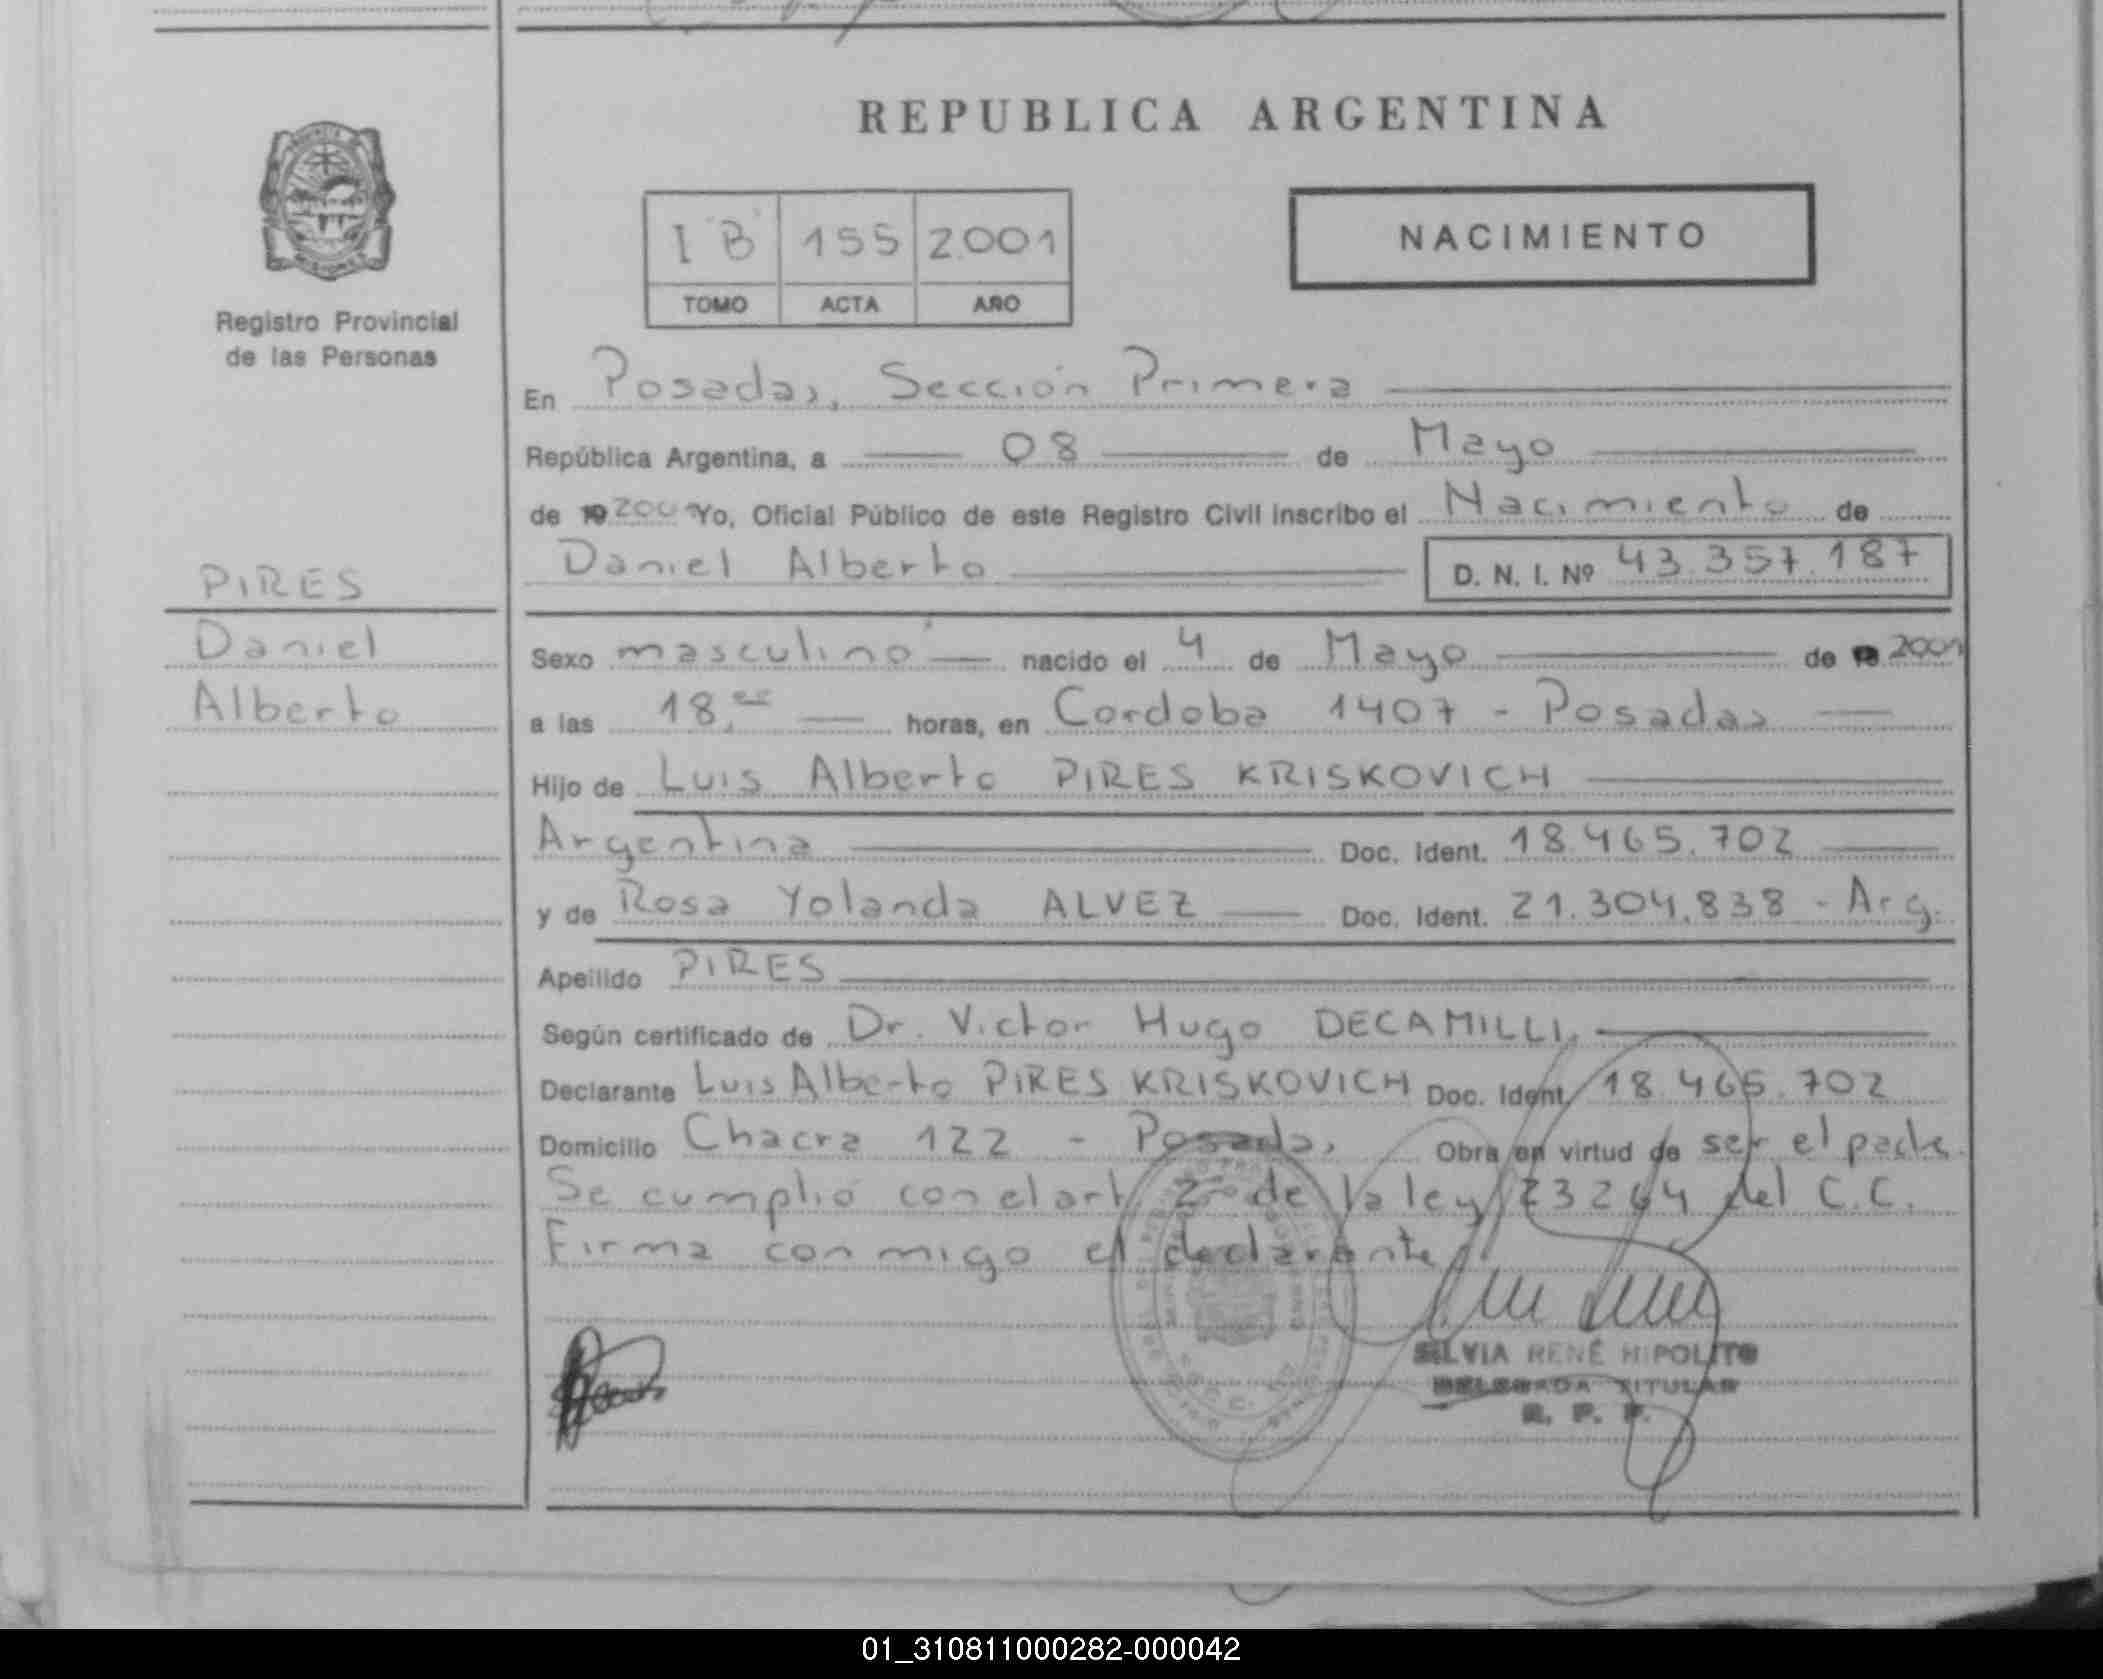 REPUBLICA ARGENTINA
NACIMIENTO
I "B" 155 2001
TOMO ACTA AÑO
Registro Provincial
de las Personas
En Posadas, Sección Primera
República Argentina, a 08 de Mayo
de 19 2001 Yo, Oficial Público de este Registro Civil inscribo el Nacimiento de
Daniel Alberto D. N. I. Nº 43.357.187
PIRES
Daniel
Alberto
Sexo masculino nacido el 4 de Mayo de 2001
a las 18,00 horas, en Cordoba 1407 - Posadas
Hijo de Luis Alberto PIRES KRISKOVICH
Argentina Doc. Ident. 18.465.702
y de Rosa Yolanda ALVEZ Doc. Ident. 21.304.838 - Arg.
Apellido PIRES
Según certificado de Dr. Victor Hugo DECAMILLI.
Declarante Luis Alberto PIRES KRISKOVICH Doc. Ident. 18.465.702
Domicilio Chacra 122 - Posadas Obra en virtud de ser el padre.
Se cumplió con el art 2º de la ley 23264 del C.C.
Firma conmigo el declarante
SILVIA RENÉ HIPOLITO
DELEGADA TITULAR
R. P. P.
01_310811000282-000042